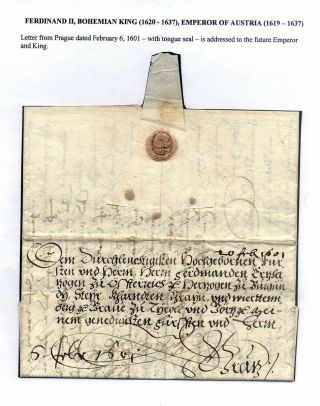 FERDINAND II, BOHEMIAN KING (1620 - 1637), EMPEROR OF AUSTRIA (1619 – 1637)
Letter from Prague dated February 6, 1601 – with tongue seal – is addressed to the future Emperor
and King.
20 feb 1601
Dem Durchleuchtigisten Hochgebornen Für
sten und Herrn Herrn Ferdinanden Erzher
hogen zu Österreich Herzogen zu Burgun
dy, Steyr, Kharndten, Crain, und Wiertem
berg Graue zu Tyrol und Görz mei
nem genedigisten Fürsten und Herrn
6. feb. 1601
Gräz